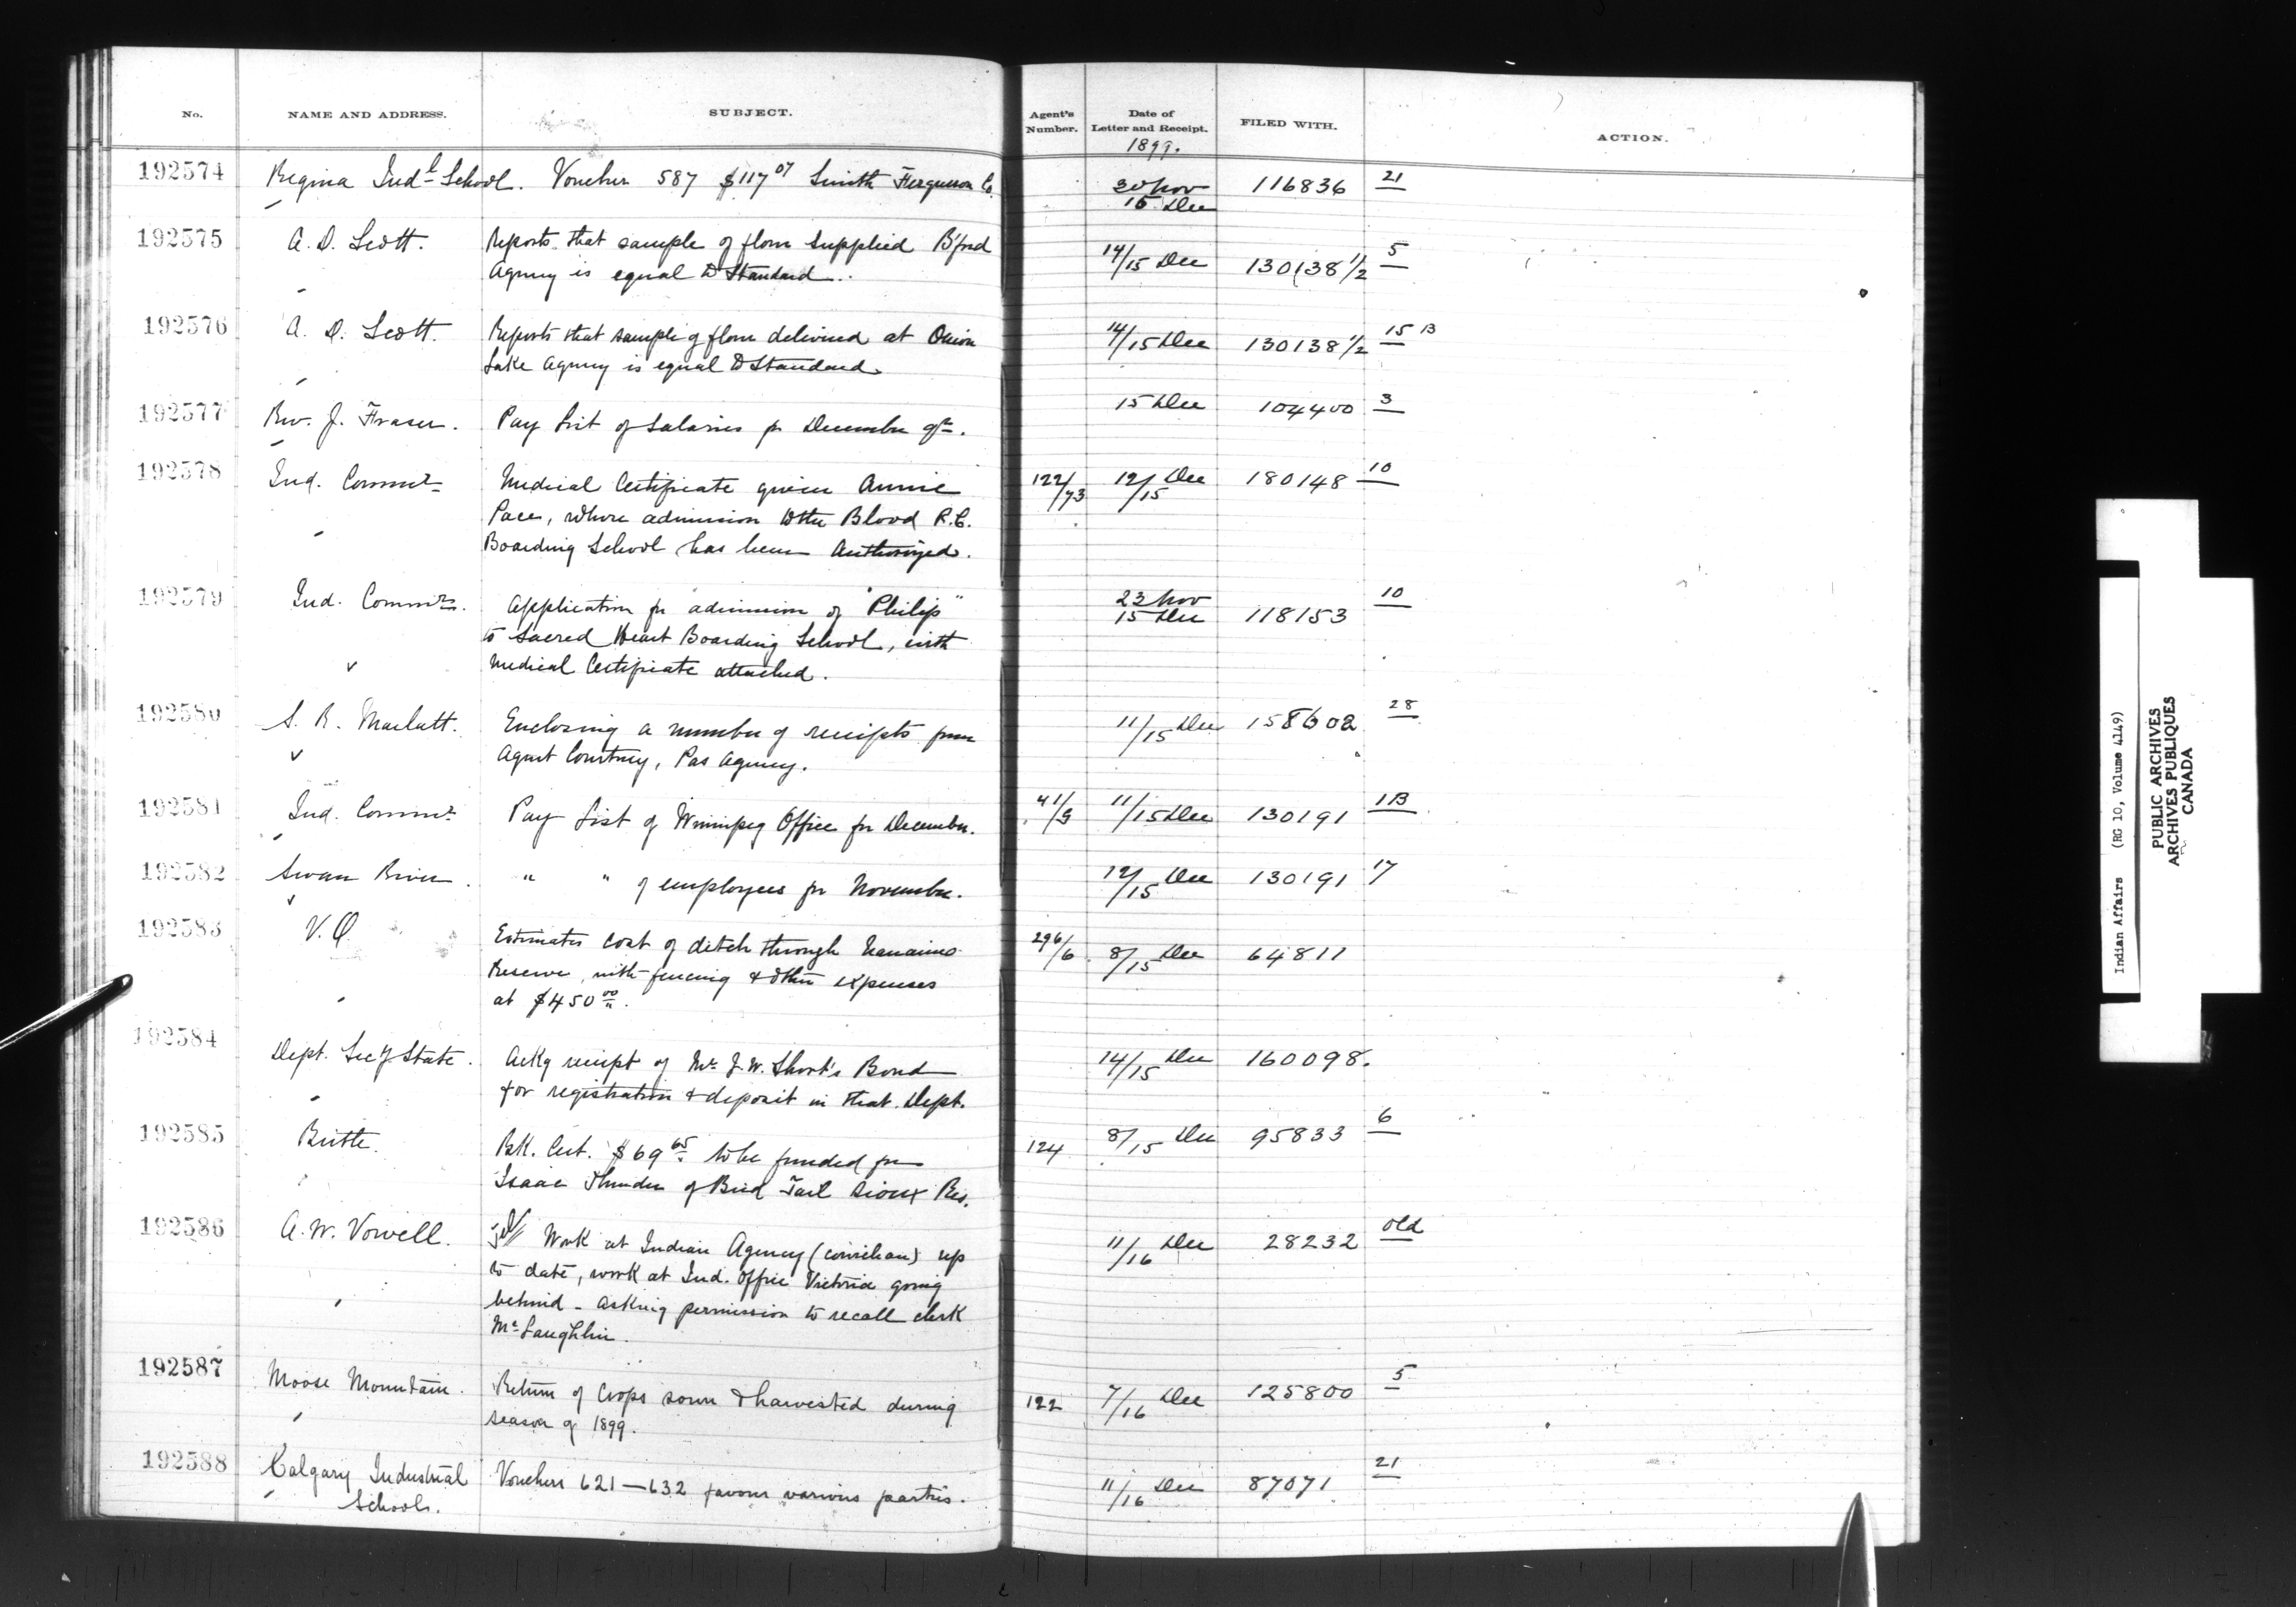 No. NAME AND ADDRESS. SUBJECT. Agent's Number. Date of Letter and Receipt. FILED WITH. ACTION.
1899.
192574 Regina Indl School. Voucher 587 $117 07 Smith Fergusson Co. 30 Nov 15 Dec 116836 21
192575 A. D. Scott. Reports that sample of flour supplied B'ford 14/15 Dec 130138 1/2 5
Agency is equal to Standard.
192576 A. D. Scott. Reports that sample of flour delivered at Onion 14/15 Dec 130138 1/2 15 B
Lake Agency is equal to Standard
192577 Rev. J. Fraser. Pay List of Salaries for December qr. 15 Dec 104400 3
192578 Ind. Commr Medical Certificate given Annie 122/73 12/15 Dec 180148 10
Pace, whose admission to the Blood R.C.
Boarding School has been Authorized.
192579 Ind. Commr. Application for admission of "Philip" 23 Nov 15 Dec 118153 10
to Sacred Heart Boarding School, with
Medical Certificate attached.
192580 S. R. Marlatt. Enclosing a number of receipts from 11/15 Dec 158602 28
Agent Courtney, Pas Agency.
192581 Ind. Commr Pay List of Winnipeg Office for December. 41/9 11/15 Dec 130191 1B
192582 Swan River. " " of employees for November. 12/15 Dec 130191 17
192583 V.O. Estimates cost of ditch through Nanaimo 296/6 8/15 Dec 64811
Reserve, with fencing & other expenses
at $450 00.
192584 Dept. Secy State. Ackg receipt of Mr J. W. Short's Bond 14/15 Dec 160098.
for registration & deposit in that Dept.
192585 Birtle. Bk. Cert. $69 65 to be funded for 124 8/15 Dec 95833 6
Isaac Thunder of Bird Tail Sioux Res.
192586 A. W. Vowell. Work at Indian Agency (Cowichan) up 11/16 Dec 28232 old
to date, work at Ind. Office Victoria going
behind - Asking permission to recall clerk
McLaughlin.
192587 Moose Mountain. Return of Crops sown & harvested during 122 7/16 Dec 125800 5
season of 1899.
192588 Calgary Industrial Vouchers 621—632 favour various parties. 11/16 Dec 87071 21
School.
Indian Affairs (RG 10, Volume 4149)
PUBLIC ARCHIVES
ARCHIVES PUBLIQUES
CANADA